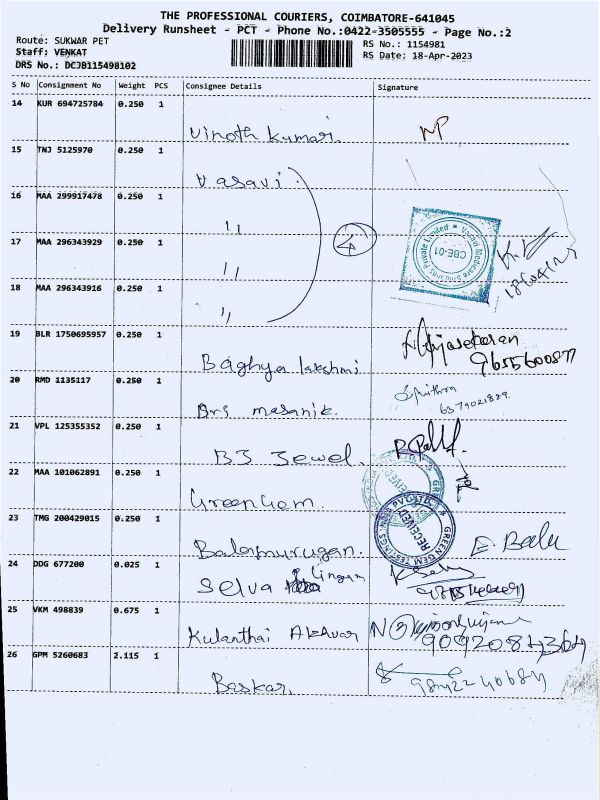 THE PROFESSIONAL COURIERS, COIMBATORE-641045
Delivery Runsheet - PCT - Phone No.:0422-3505555 - Page No.:2
Route: SUKWAR PET
Staff: VENKAT
DRS No.: DCJB115498102
RS No.: 1154981
RS Date: 18-Apr-2023
S No Consignment No Weight PCS Consignee Details Signature
14 KUR 694725784 0.250 1
Vinoth Kumar
15 TNJ 5125970 0.250 1
Vasavi
16 MAA 299917478 0.250 1
"
17 MAA 296343929 0.250 1
"
4
18 MAA 296343916 0.250 1
"
CBE-01
19 BLR 1750695957 0.250 1
Baghya lakshmi
20 RMD 1135117 0.250 1
21 VPL 125355352 0.250 1
BJ Jewel
22 MAA 101062891 0.250 1
Green Gem
RECEIVED
23 TMG 200429015 0.250 1
Balamurugan
E. Balu
24 DDG 677200 0.025 1
Selva Lingam
25 VKM 498839 0.675 1
Kulanthai
26 GPM 5260683 2.115 1
Baskar